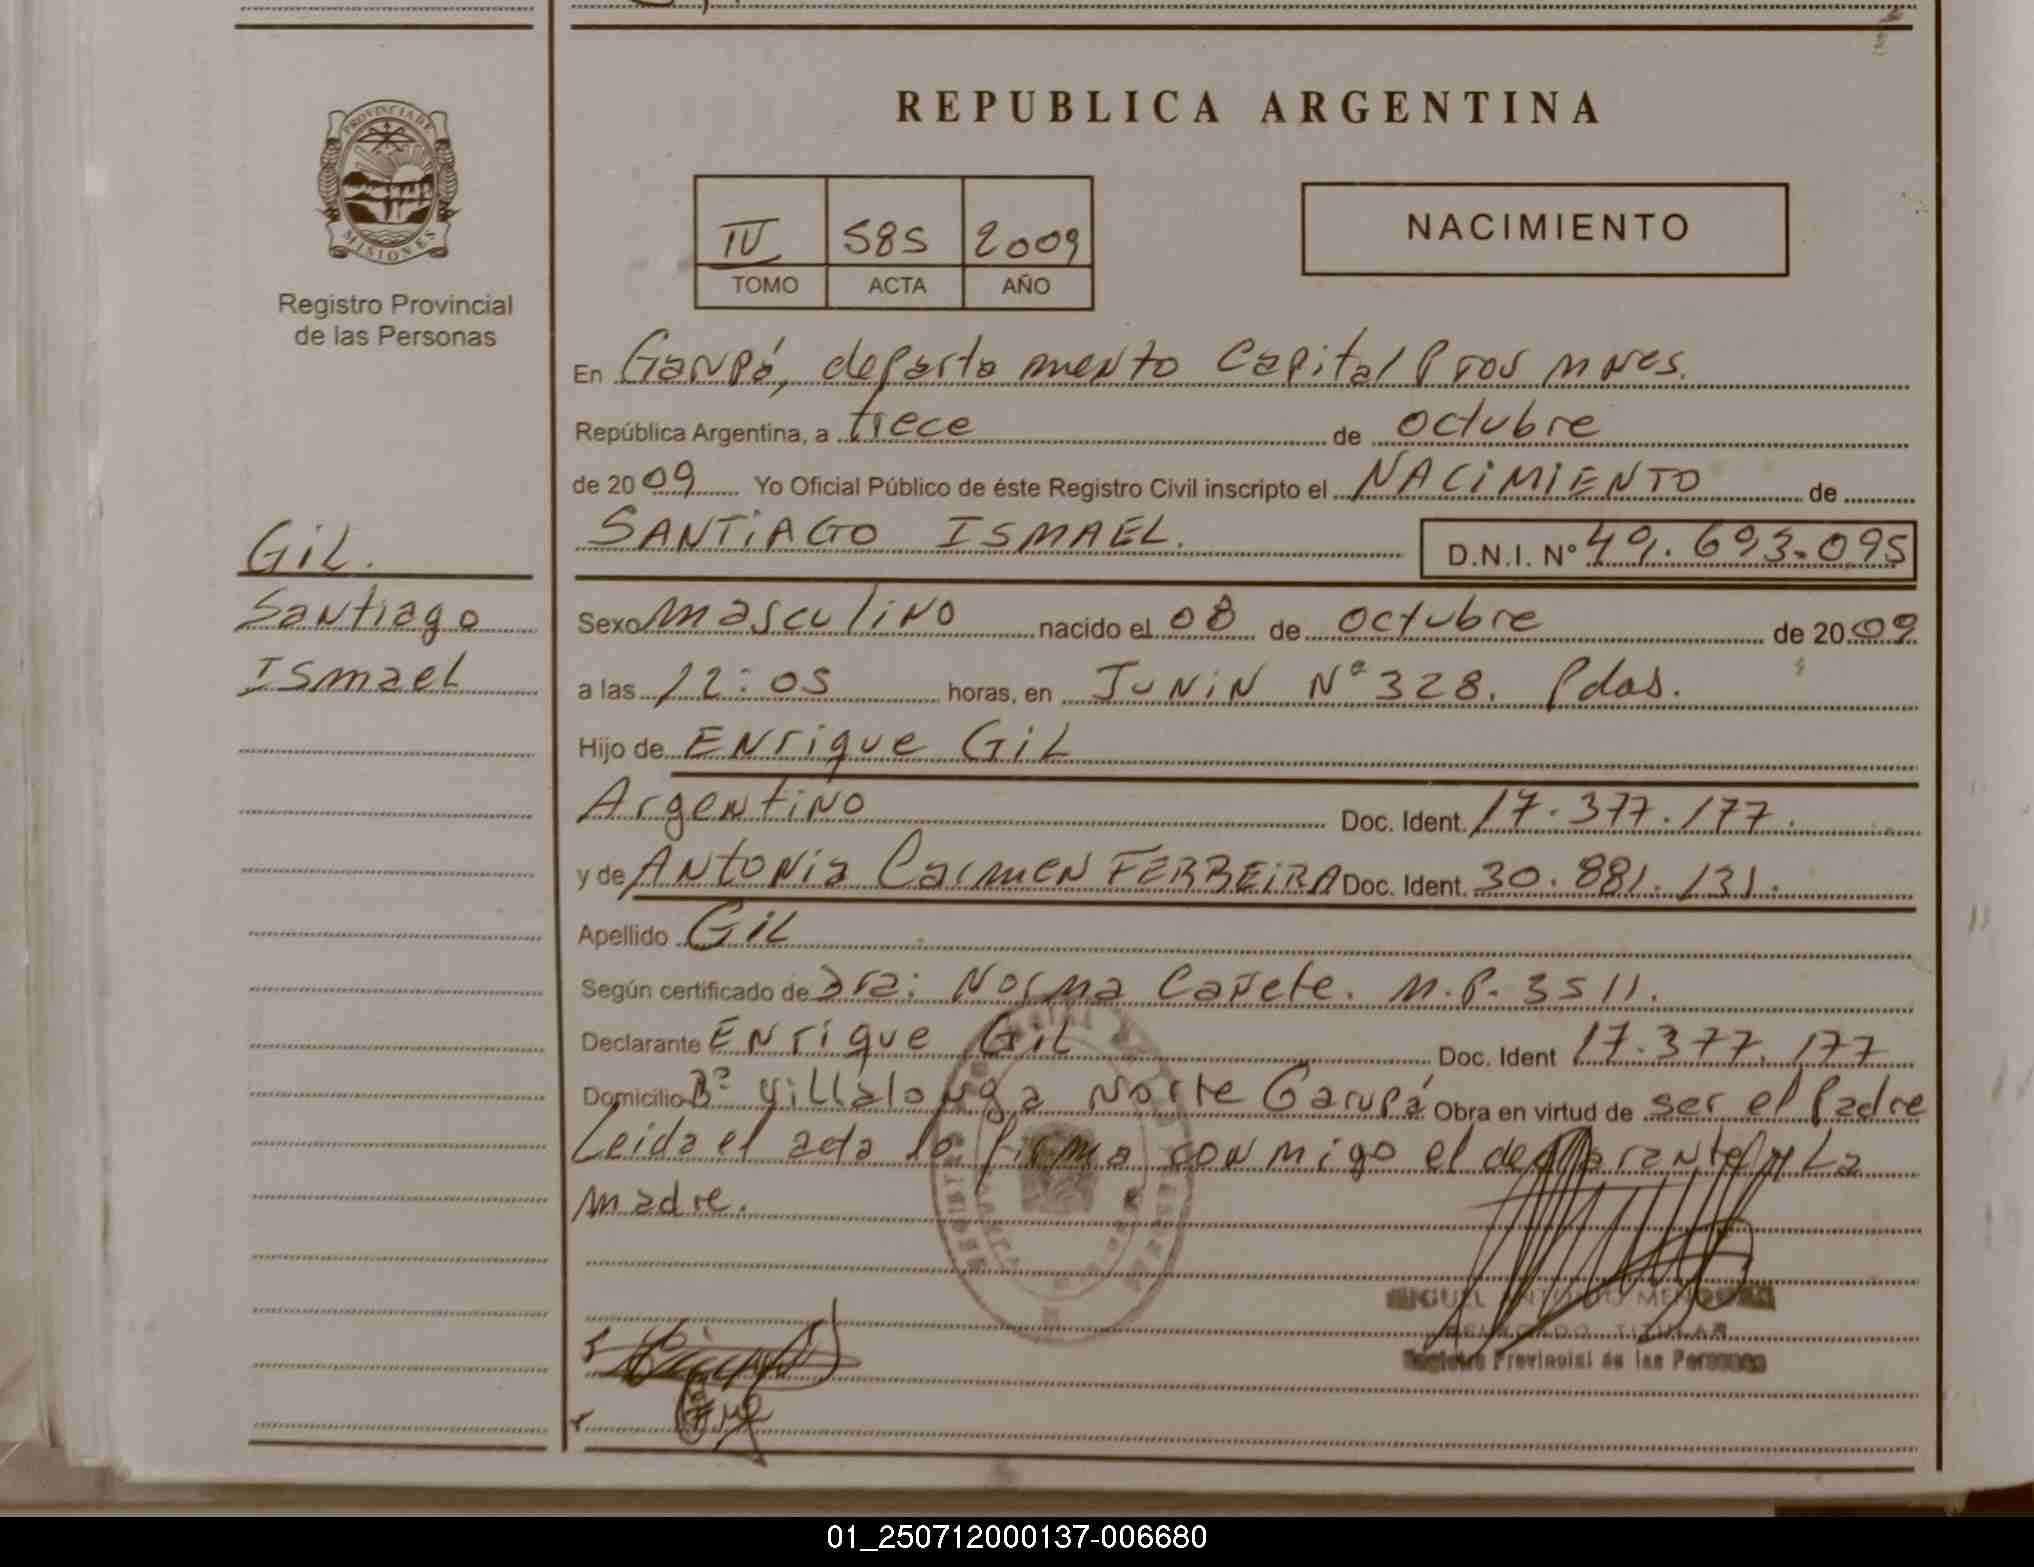 REPUBLICA ARGENTINA
PROVINCIA DE MISIONES
Registro Provincial
de las Personas
IV 585 2009
TOMO ACTA AÑO
NACIMIENTO
En Garupá, departamento Capital Pros Mnes.
República Argentina, a trece de octubre
de 2009 Yo Oficial Público de éste Registro Civil inscripto el NACIMIENTO de
SANTIAGO ISMAEL. D.N.I. Nº 49.693.095
GIL.
Santiago
Ismael
Sexo masculino nacido el 08 de octubre de 2009
a las 12:05 horas, en JUNIN Nº 328. Pdas.
Hijo de Enrique GIL
Argentino Doc. Ident. 17.377.177.
y de Antonia Carmen FERREIRA Doc. Ident. 30.881.131.
Apellido GIL
Según certificado de Dra: Norma Cañete. M.P. 3511.
Declarante Enrique GIL Doc. Ident 17.377.177
Domicilio Bº Villalonga Norte Garupá Obra en virtud de ser el Padre
Leida el acta la firma conmigo el declarante y La
madre.
MIGUEL ANTONIO
DELEGADO TITULAR
Registro Provincial de las Personas
01_250712000137-006680